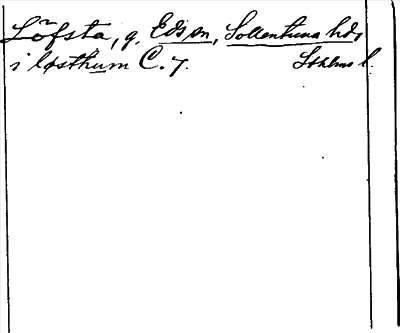 Löfsta, g, Eds sn, Sollentuna hd,
i løsthum C. 7. Sthlms l.